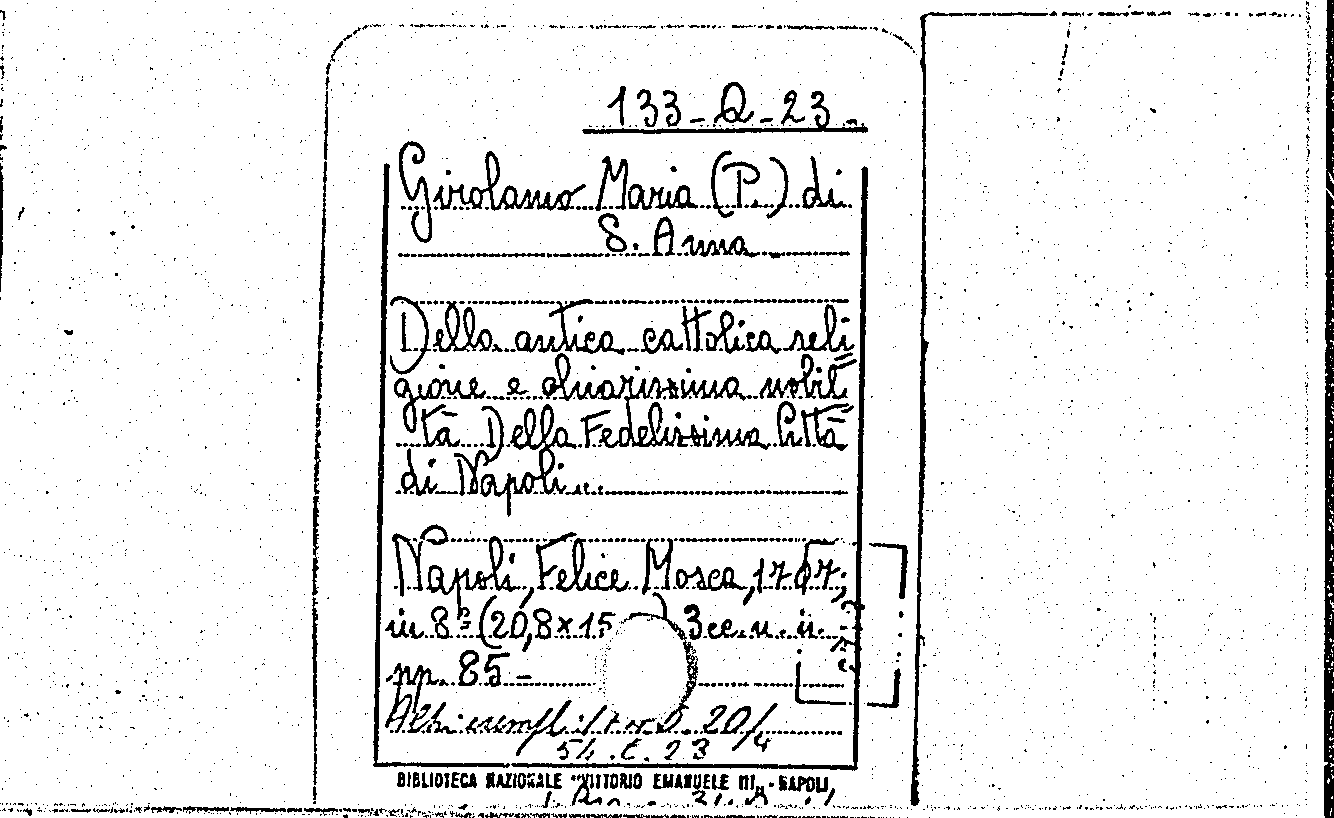 133-Q-23-
Girolamo Maria (P.) di
S. Anna
Della antica cattolica reli
gione e chiarissima nobil
tà Della Fedelissima Città
di Napoli...
Napoli, Felice Mosca, 1707;
in 8º (20,8×15 ) 3cc.n.n.
pp. 85-
Altri
54.C.23
BIBLIOTECA NAZIONALE "VITTORIO EMANUELE III" - NAPOLI